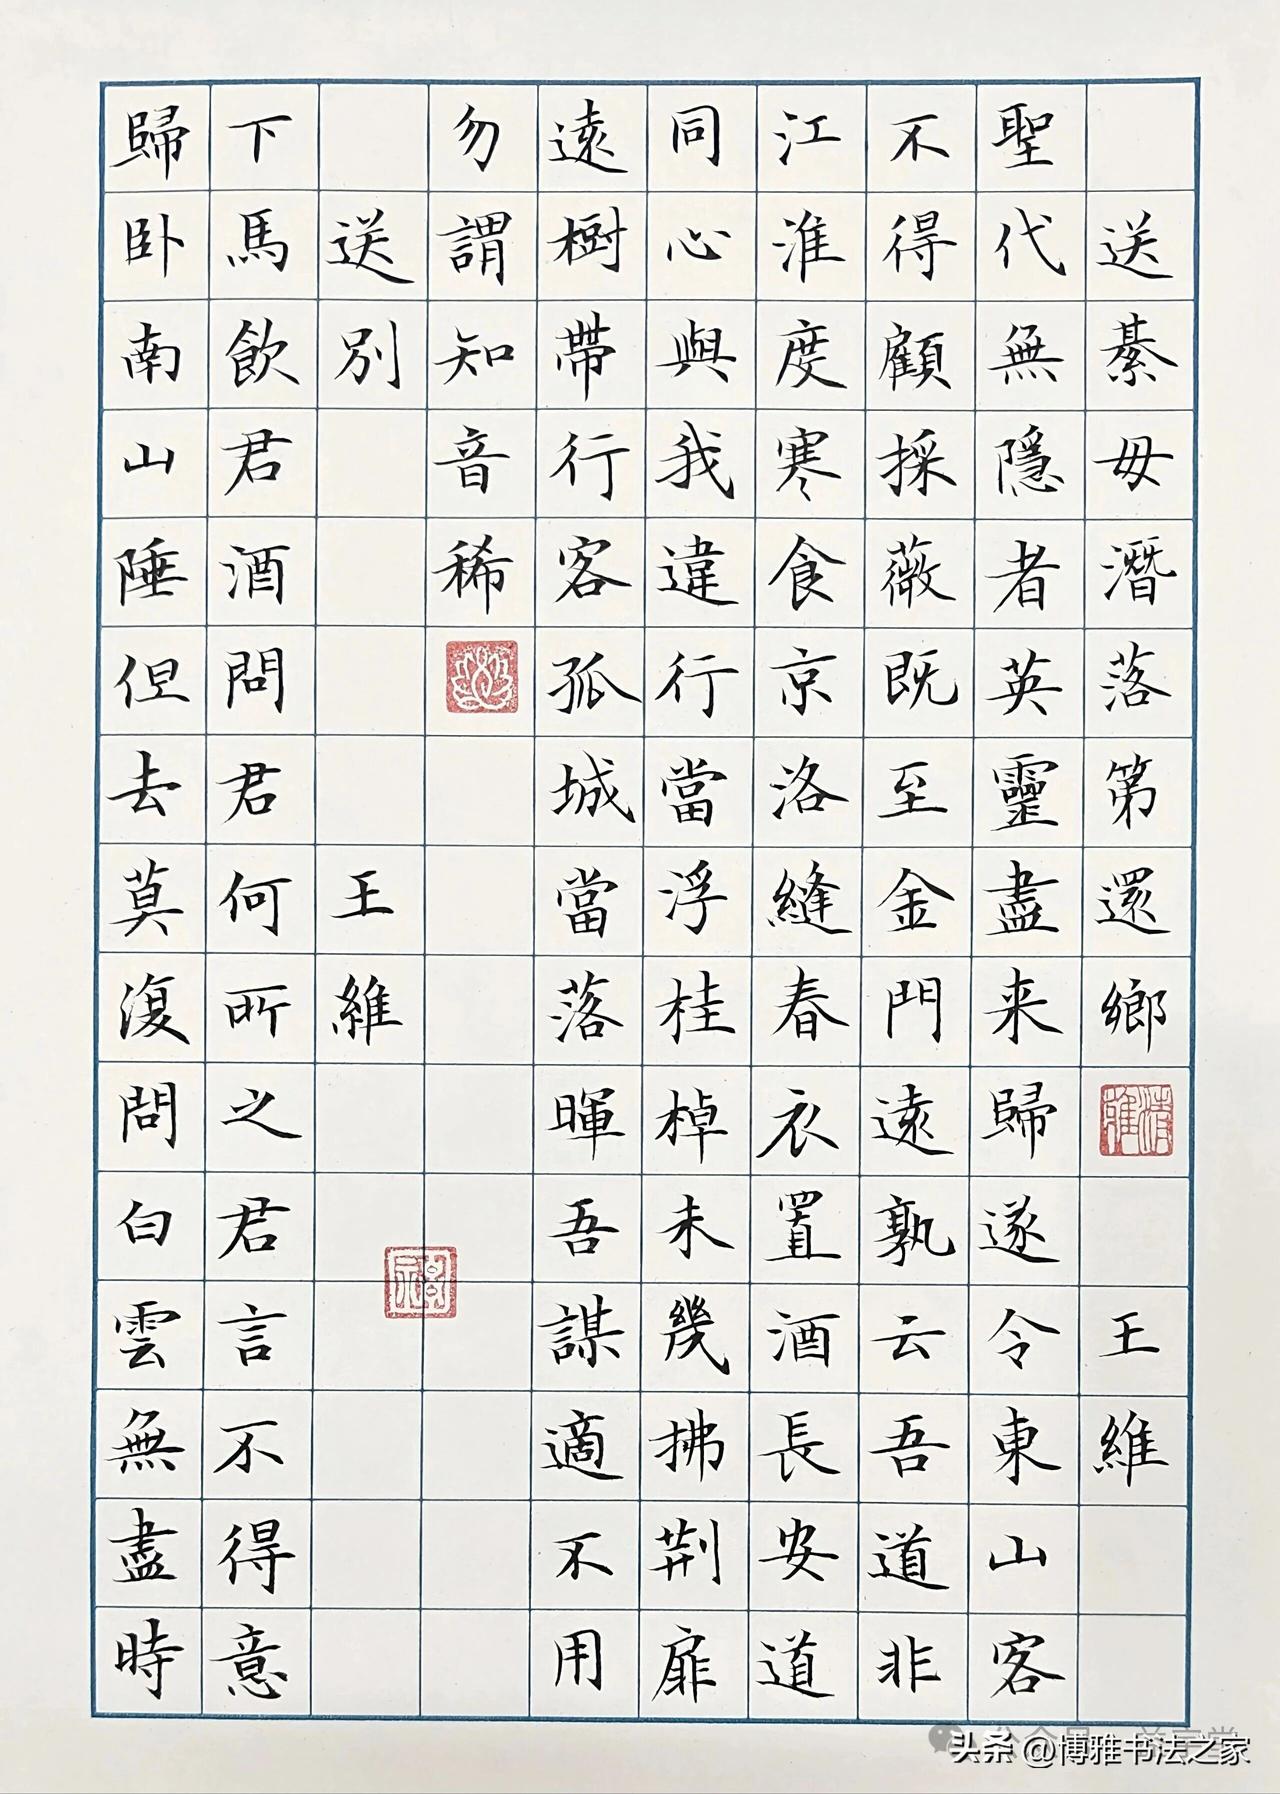 送綦毋潛落第還鄉 王維
聖代無隱者英靈盡来歸遂令東山客
不得顧採薇既至金門遠孰云吾道非
江淮度寒食京洛縫春衣置酒長安道
同心與我違行當浮桂棹未幾拂荆扉
遠樹帶行客孤城當落暉吾謀適不用
勿謂知音稀
送別 王維
下馬飲君酒問君何所之君言不得意
歸卧南山陲但去莫復問白雲無盡時
头条 @博雅书法之家